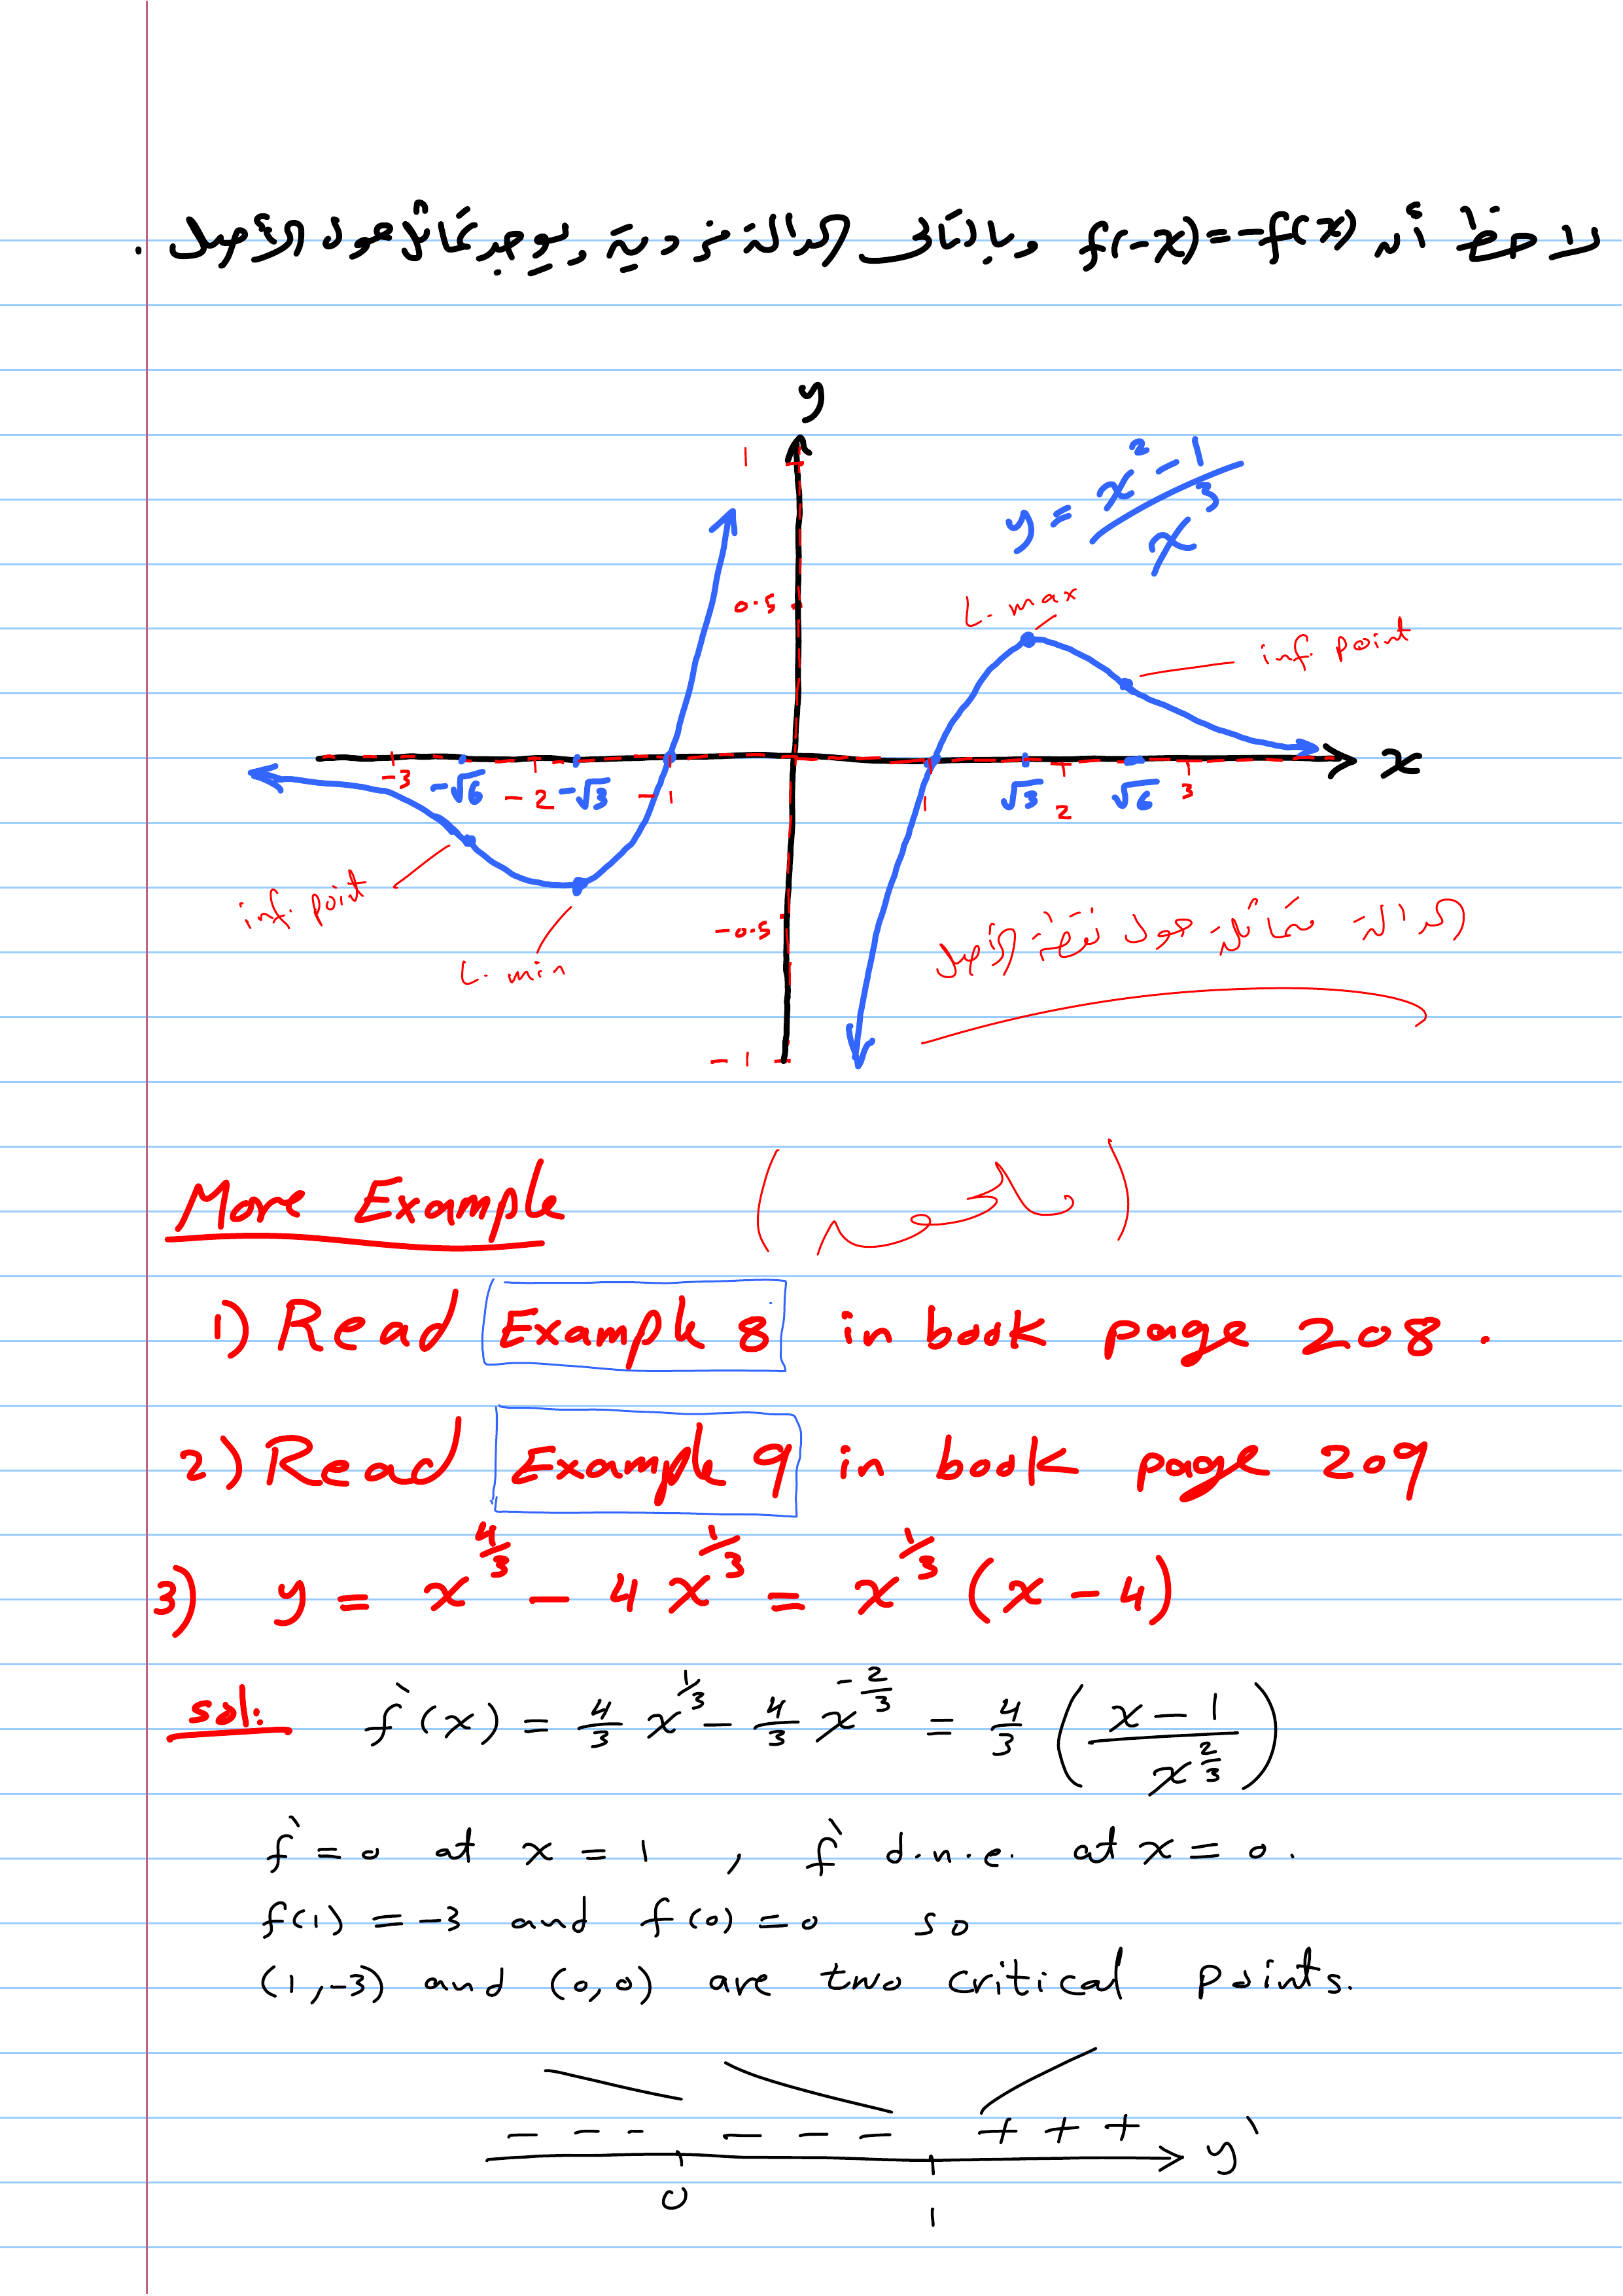 لاحظ أن f(-x)=-f(x) وبالتالي الدالة فردية ويوجد تماثل حول الأصل .
y
1
y = x²-1 / x³
0.5
L. max
inf. point
x
-3 -√6 -2 -√3 -1 1 √3 2 √6 3
inf. point
L. min
-0.5
الدالة متماثلة حول نقطة الأصل
-1
More Example
1) Read Example 8 in book page 208 .
2) Read Example 9 in book page 209
3) y = x^{4/3} - 4x^{1/3} = x^{1/3} (x-4)
sol: f`(x) = 4/3 x^{1/3} - 4/3 x^{-2/3} = 4/3 ( x-1 / x^{2/3} )
f` = 0 at x = 1 , f` d.n.e. at x = 0 .
f(1) = -3 and f(0) = 0 so
(1,-3) and (0,0) are two critical points.
- - - - - - + + + y`
0 1